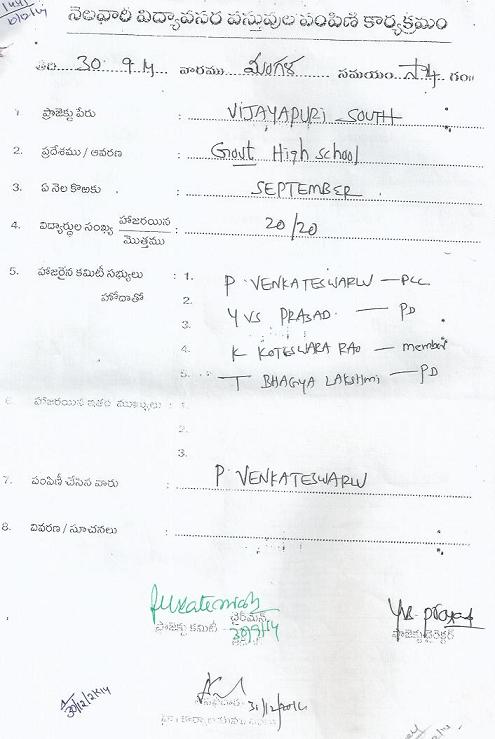 నెలవారి విద్యావసర వస్తువుల పంపిణి కార్యక్రమం
తేది 30.9.14 వారము మంగళ సమయం సా 4 గం॥
1. ప్రాజెక్టు పేరు : VIJAYAPURI SOUTH
2. ప్రదేశము / ఆవరణ : Govt High school
3. ఏ నెల కొఱకు : SEPTEMBER
4. విద్యార్థుల సంఖ్య హాజరయిన / మొత్తము : 20/20
5. హాజరైన కమిటీ సభ్యులు : 1. P VENKATESWARLU — PCC
హోదాతో 2. Y VS PRASAD — PD
3.
4. K KOTESWARA RAO — member
5. T BHAGYA LAKSHMI — PD
6. హాజరయిన ఇతర ముఖ్యులు : 1.
2.
3.
7. పంపిణీ చేసిన వారు : P VENKATESWARLU
8. వివరణ / సూచనలు :
ఛైర్మన్
ప్రాజెక్టు కమిటీ 30/9/14
ప్రాజెక్టు డైరెక్టర్
31/12/2014
30/12/2k14